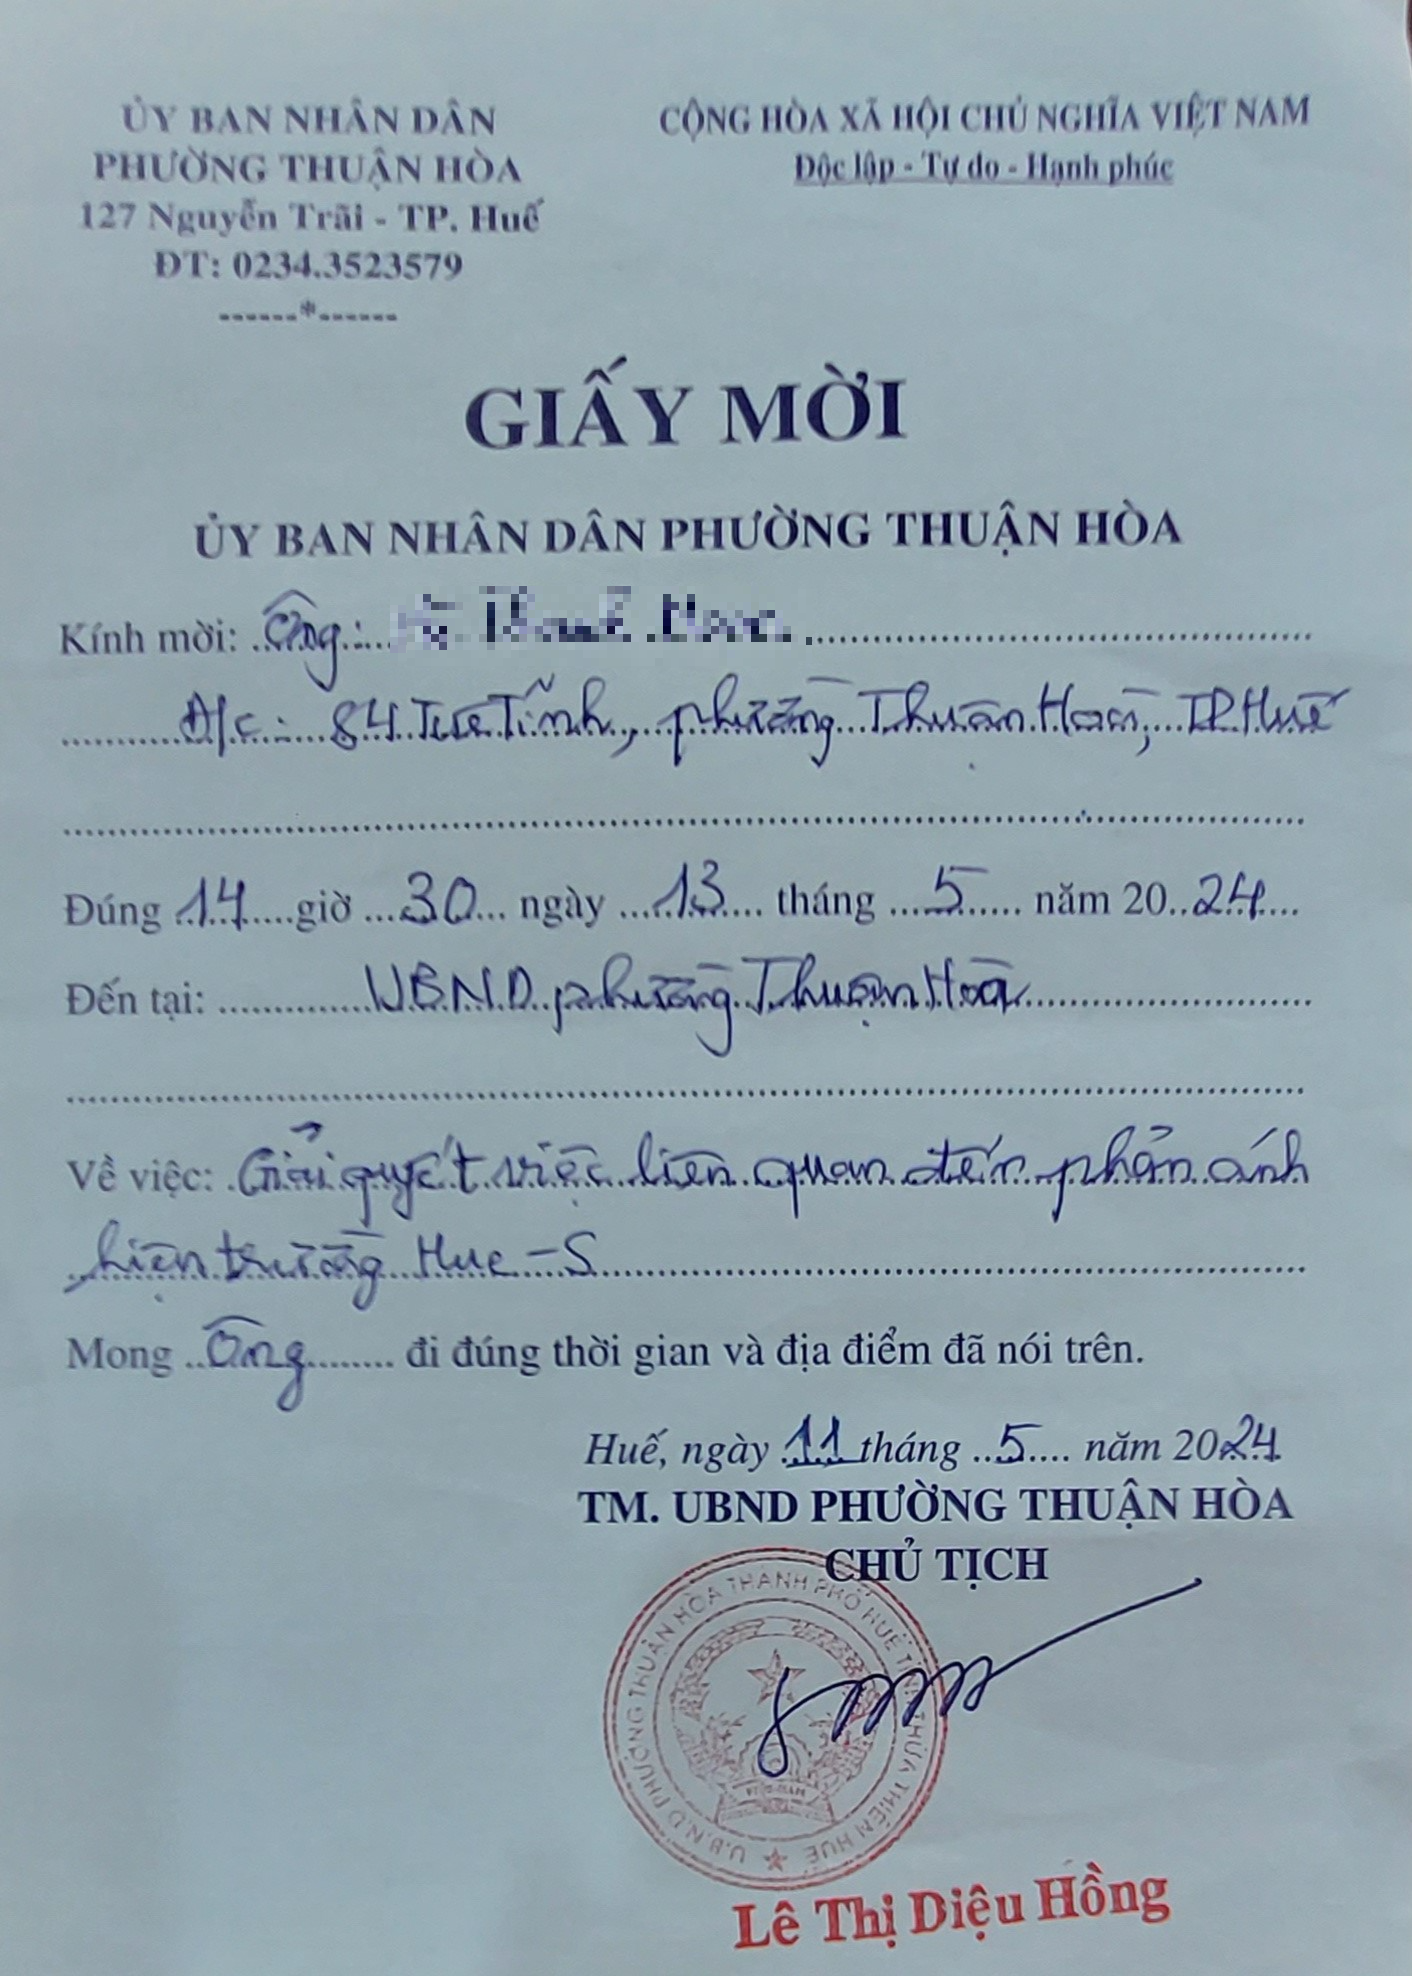 ỦY BAN NHÂN DÂN
PHƯỜNG THUẬN HÒA
127 Nguyễn Trãi - TP. Huế
ĐT: 0234.3523579
------*------
CỘNG HÒA XÃ HỘI CHỦ NGHĨA VIỆT NAM
Độc lập - Tự do - Hạnh phúc
GIẤY MỜI
ỦY BAN NHÂN DÂN PHƯỜNG THUẬN HÒA
Kính mời: Ông:
Đ/c: 84 Tuệ Tĩnh, phường Thuận Hoà, TP Huế
Đúng 14 giờ 30 ngày 13 tháng 5 năm 2024
Đến tại: UBND phường Thuận Hoà
Về việc: Giải quyết việc liên quan đến phản ánh
hiện trường Hue-S
Mong Ông đi đúng thời gian và địa điểm đã nói trên.
Huế, ngày 11 tháng 5 năm 2024
TM. UBND PHƯỜNG THUẬN HÒA
CHỦ TỊCH
U.B.N.D PHƯỜNG THUẬN HÒA THÀNH PHỐ HUẾ TỈNH THỪA THIÊN HUẾ
Lê Thị Diệu Hồng